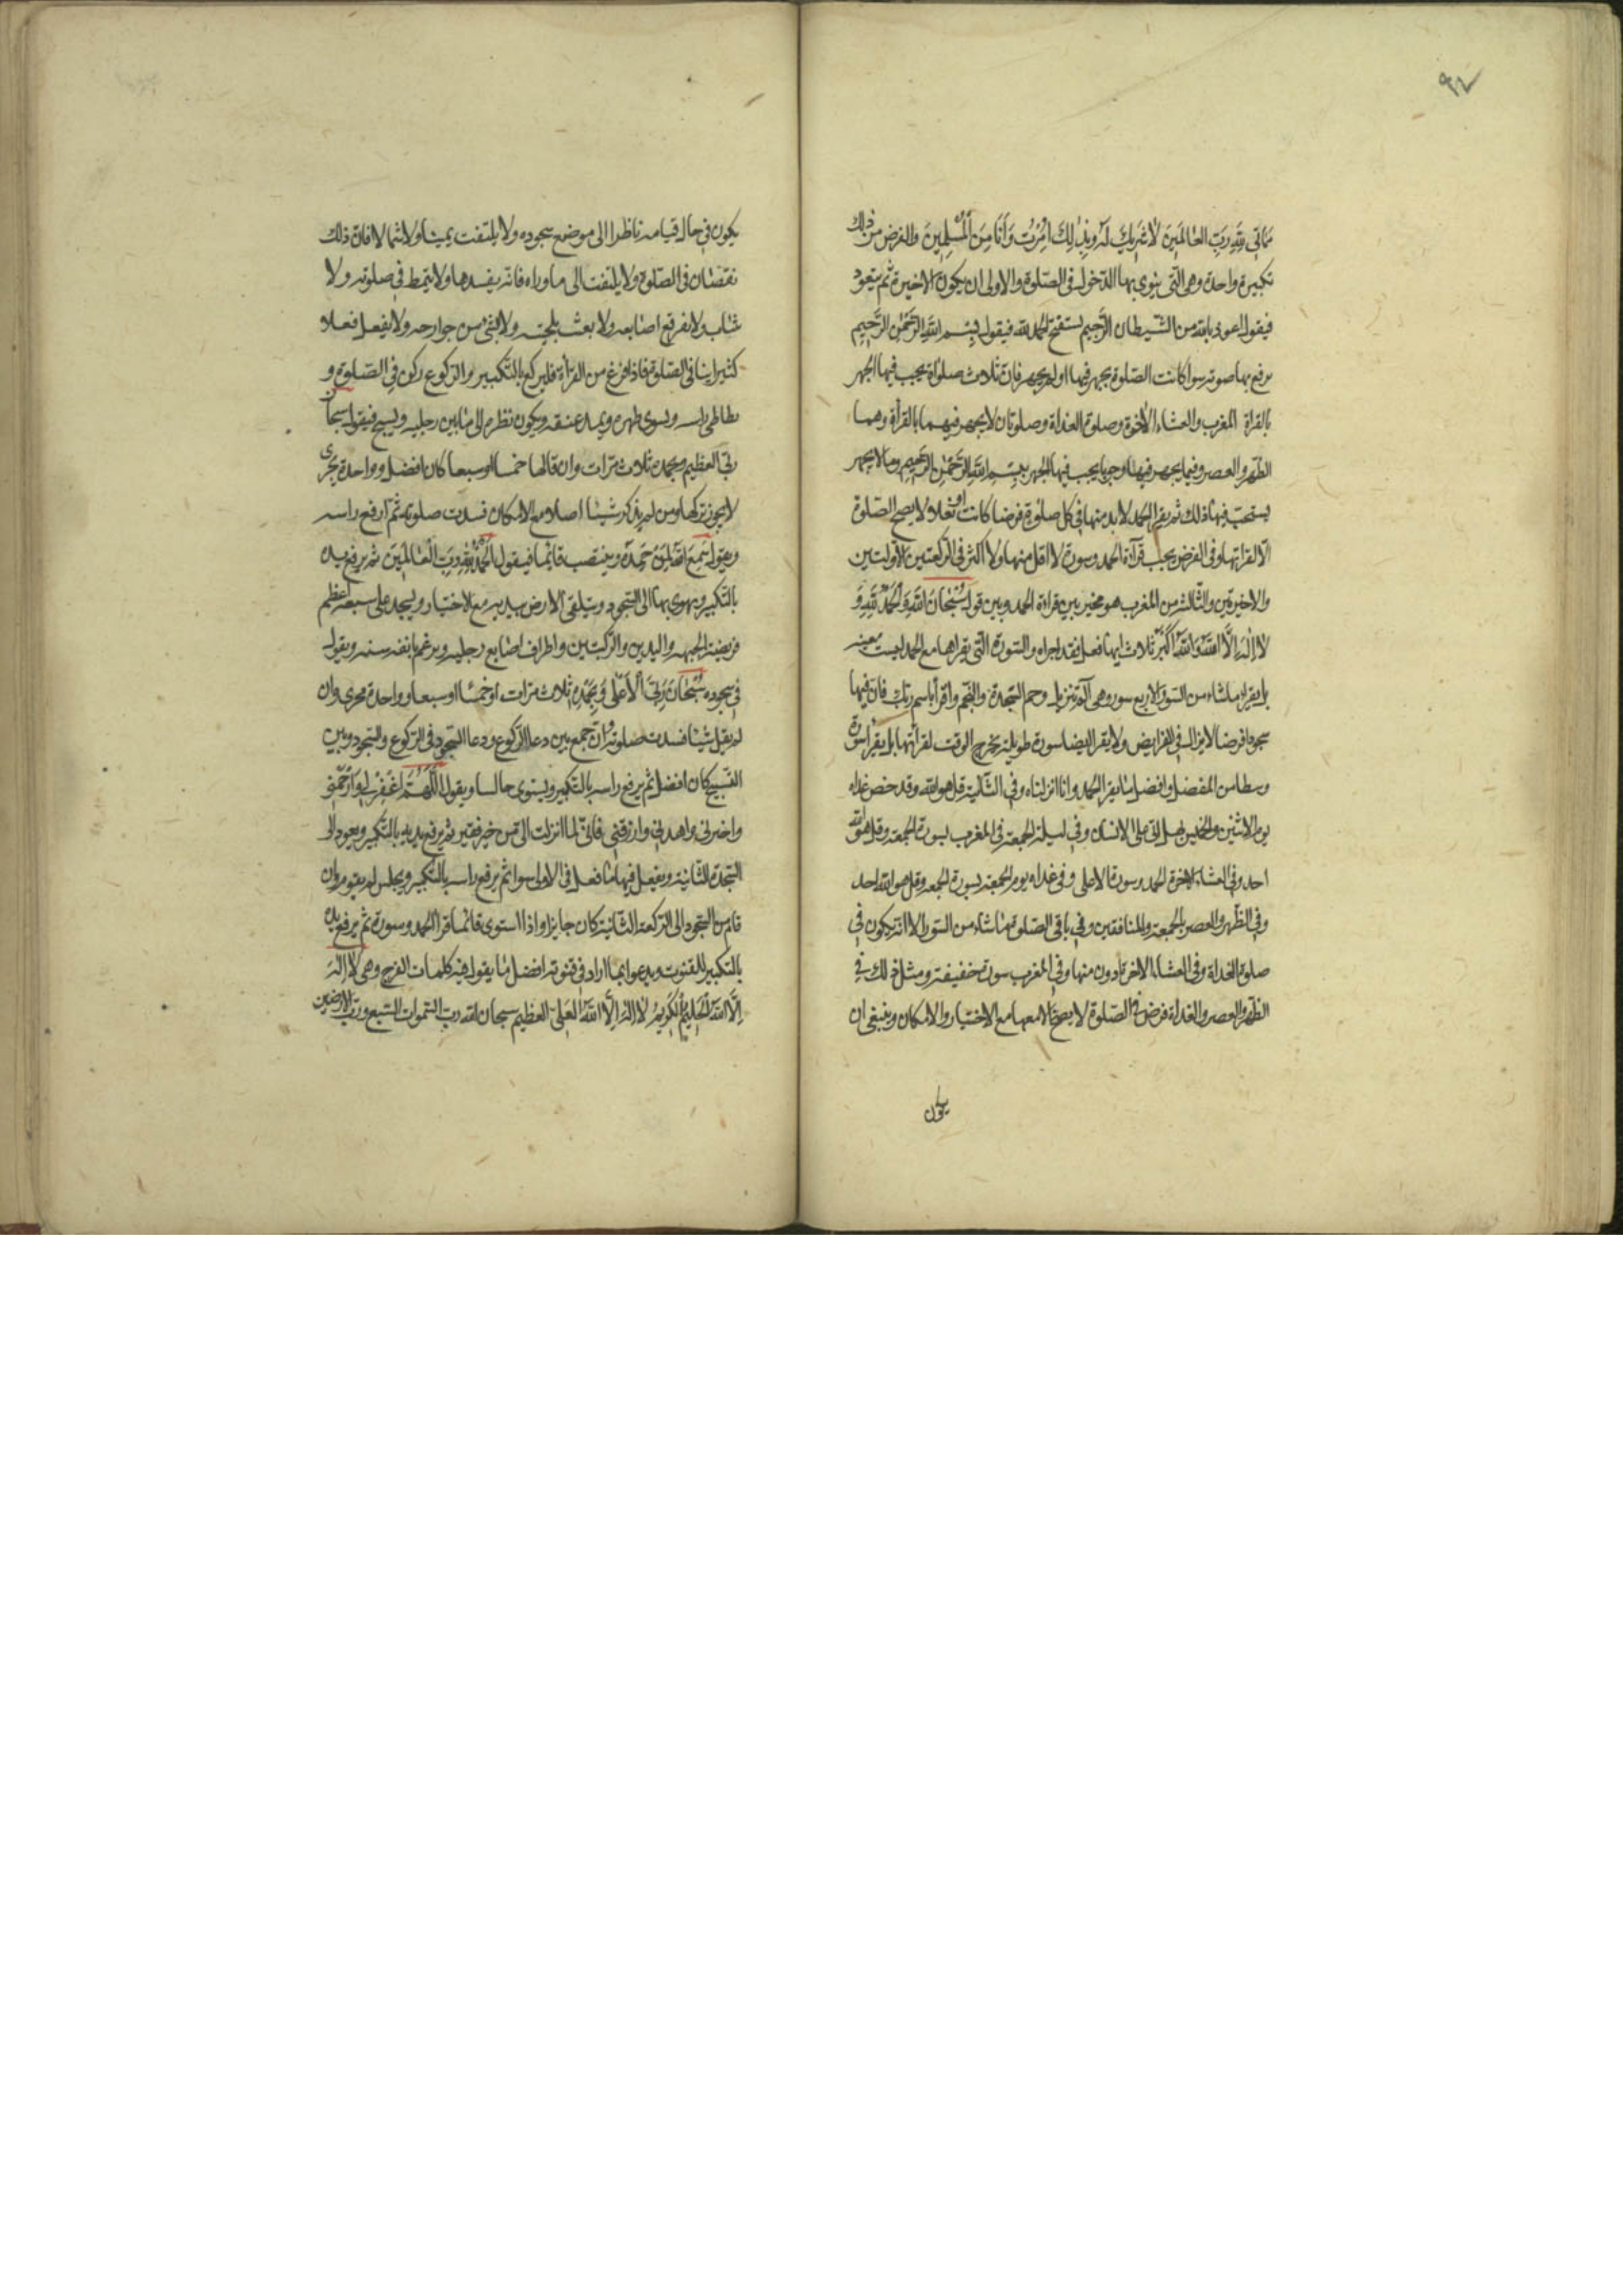 ٩٢
مماتي لله رب العالمين لا شريك له وبذلك امرت وانا من المسلمين والفرض من ذلك
تكبيرة واحدة وهى التى ينوى بها الدخول فى الصلوة والاولى ان يكون الاخيرة ثم يتعوذ
فيقول اعوذ بالله من الشيطان الرجيم يستفتح الحمد لله فيقول بِسْمِ اللهِ الرَّحْمٰنِ الرَّحِيمِ
يرفع بها صوته سوا كانت الصلوة يجهر فيها او لم يجهر فان ثلاث صلواة يجب فيها الجهر
بالقراة المغرب والعشاء الاخرة وصلوة الغداة وصلوتان لا يجهر فيهما بالقرأة وهما
الظهر والعصر وفيما يجهر فيها وجوبا يجب فيها الجهر ببسم الله الرحمن الرحيم وما لا يجهر
يستحب فيها ذلك ثم يقرا الحمد لا بد منها فى كل صلوة فرضا كانت او نفلا ولا يصح الصلوة
الا بقراتها وفى الفرض يجب قرآة الحمد وسورة لا اقل منها ولا اكثر فى الركعتين الاولتين
والاخيرتين والثالثة من المغرب هو مخير بين قراءة الحمد وبين قول سُبْحَانَ اللهِ وَالْحَمْدُ لِلّٰهِ وَ
لا اِلٰهَ اِلَّا اللهُ وَاللهُ اَكْبَرُ ثلاث ايها فعل فقد اجراه والسورة التى يقراها مع الحمد ليست معينه
بل يقراء ما شاء من السور الا اربع سور وهى الم تنزيل وحم السجدة والنجم واقرأ باسم ربك فان فيها
سجودا فرضا لا يزال فى الفرايض ولا يقرا ايضا سورة طويلة يخرج الوقت لقرأتها بل يقرا سورة
وسطا من المفضل وافضل ما يقرا الحمد وانا انزلناه وفى الثانية قل هو الله وقد خص غداه
يوم الاثنين والخميس بهل اتى على الانسان وفى ليلة الجمعة فى المغرب بسورة الجمعة وقل هو الله
احد وفى العشاء الاخرة الحمد وسورة الاعلى وفى غداه يوم الجمعة بسورة الجمعة وقل هو الله احد
وفى الظهر والعصر بالجمعة والمنافقين وفى باقى الصلوة مهما شاء من السور الا انه يكون فى
صلوة الغداة وفى العشاء الاخرة ادون منها وفى المغرب سورة خفيفة ومثل ذلك فى
الظهر والعصر والغداة فرض فى الصلوة لا يصح الا معها مع الاختيار والامكان وينبغى ان
يكون
يكون فى حال قيامه ناظرا الى موضع سجوده ولا يلتفت يمينا ولا شمالا فان ذلك
نقصان فى الصلوة ولا يلتفت الى ما وراه فانه يفسدها ولا يتمط فى صلوته ولا
يتثاب ولا يفرقع اصابعه ولا يعبث بلحيته ولا بشئ من جوارحه ولا يفعل فعلا
كثيرا ينافى الصلوة فاذا فرغ من القرأة فليركع بالتكبير والركوع ركن فى الصلوة و
يطاطى راسه ويسوى ظهره ويمد عنقه ويكون نظره الى ما بين رجليه ويسبح فيقول سبحان
ربى العظيم وبحمده ثلاث مرات وان قالها خمسا او سبعا كان افضل وواحدة يجزى
لا يجوز تركها ومن لم يذكر شيئا اصلا مع الامكان فسدت صلوته ثم ارفع راسه
ويقول سَمِعَ اللهُ لِمَنْ حَمِدَهُ وينتصب قايما فيقول الحمد لله رب العالمين ثم يرفع يديه
بالتكبير ويهوى بها الى السجود ويتلقى الارض بيديه مع الاختيار ويسجد على سبعة اعظم
فريضة الجبهه واليدين والركبتين واطراف اصابع رجليه ويرغم بانفه سنه ويقول
فى سجوده سُبْحَانَ رَبِّيَ الْاَعْلٰى وَبِحَمْدِهِ ثلاث مرات او خمسا او سبعا وواحدة مجرى وان
لم يقل شيئا فسدت صلوته وان جمع بين دعا الركوع ودعا السجود فى الركوع والسجود وبين
التسبيح كان افضل ثم يرفع راسه بالتكبير ويستوى جالسا ويقول اللّٰهُمَّ اغْفِرْ لِي وَارْحَمْنِي
واجبرنى واهدنى وارزقنى فانى لما انزلت الى من خير فقير ثم يرفع يديه بالتكبير ويعود الى
السجدة الثانية ويفعل فيها ما فعل فى الاولى سوا ثم يرفع راسه بالتكبير ويجلس ثم يقوم وان
قام من السجود الى الركعة الثانية كان جايزا واذا استوى قائما قرا الحمد وسورة ثم يرفع يديه
بالتكبير للقنوت ويدعو بما اراد فى قنوته افضل ما يقول فيه كلمات الفرج وهى لا اِلٰهَ
اِلَّا اللهُ الْحَلِيمُ الْكَرِيمُ لا اله اِلَّا اللهُ العَلى العظيم سبحان الله رب السموات السبع ورب الارضين